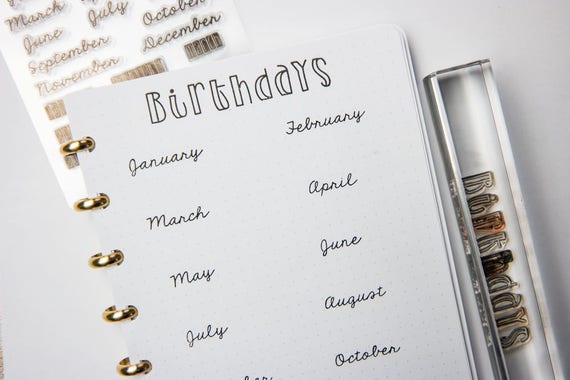 March July October
June
September December
November
Birthdays
January February
March April
May June
July August
October
Birthdays